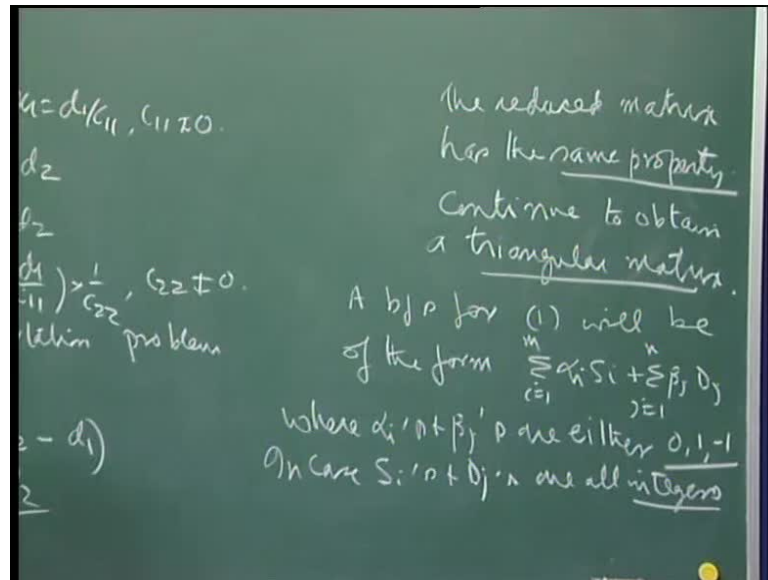 x₁ = d₁/c₁₁, c₁₁ ≠ 0.
d₂
d₂
d₁/c₁₁) × 1/c₂₂, c₂₂ ≠ 0.
problem
- d₁)
2
The reduced matrix
has the same property.
Continue to obtain
a triangular matrix.
A bfs for (1) will be
of the form ∑ᵢ₌₁ᵐ αᵢ Sᵢ + ∑ⱼ₌₁ⁿ βⱼ Dⱼ
where αᵢ's + βⱼ's are either 0, 1, -1
In case Sᵢ's + Dⱼ's are all integers